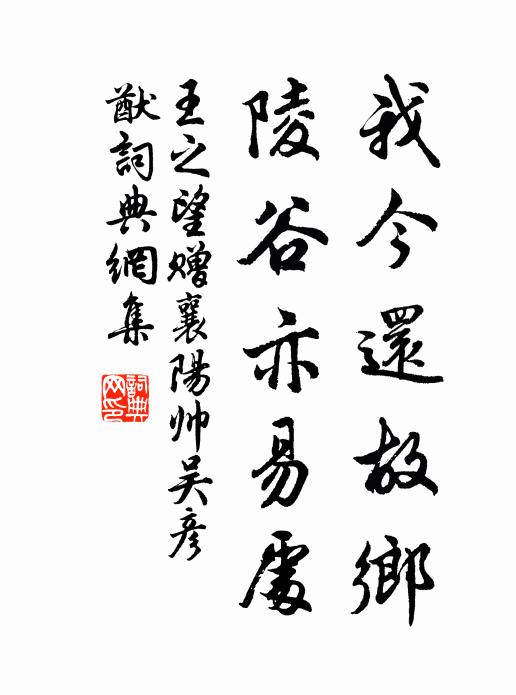 我今還故鄉
陵谷亦易處
王之望贈襄陽帅吴彦
猷詞典網集
詞典网印